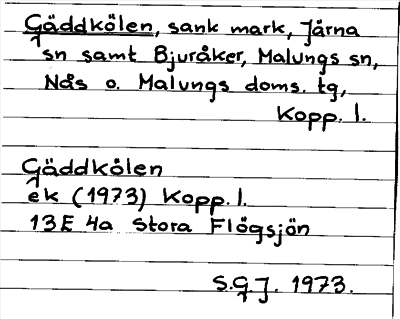 Gäddkölen, sank mark, Järna
sn samt Bjuråker, Malungs sn,
Nås o. Malungs doms. tg,
Kopp. l.
Gäddkölen
ek (1973) Kopp. l.
13E 4a Stora Flögsjön
S.G.J. 1973.